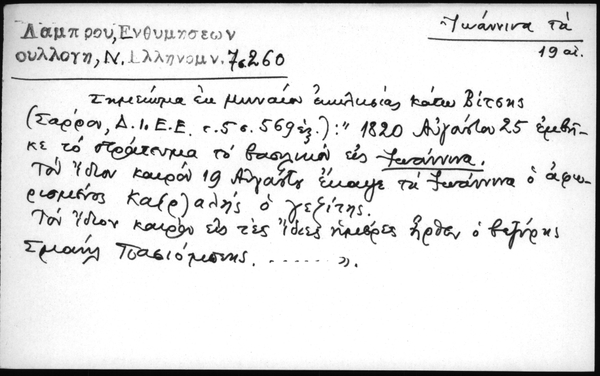 Λάμπρου, Ἐνθυμήσεων
συλλογή, Ν. Ἑλληνομν. 7ς260
Ἰωάννινα τὰ
19 αἰ.
Σημείωμα ἐκ μηναίου ἐκκλησίας κάτω Βίτσης
(Σάρρου, Δ.Ι.Ε.Ε. τ.5 σ. 569 ἑξ.): " 1820 Αὐγούστου 25 ἐμβῆ-
κε τὸ στράτευμα τὸ βασιλικὸν εἰς Ἰωάννινα.
Τὸν ἴδιον καιρὸν 19 Αὐγούστου ἔκαψε τὰ Ἰωάννινα ὁ ἀφω-
ρισμένος Κα(ρ)αλῆς ὁ γεζίτης.
Τὸν ἴδιον καιρὸν εἰς τὲς ἴδιες ἡμέρες ἦρθεν ὁ βεζήρης
Σμαὴλ Πασιόμπεης. ...... ».